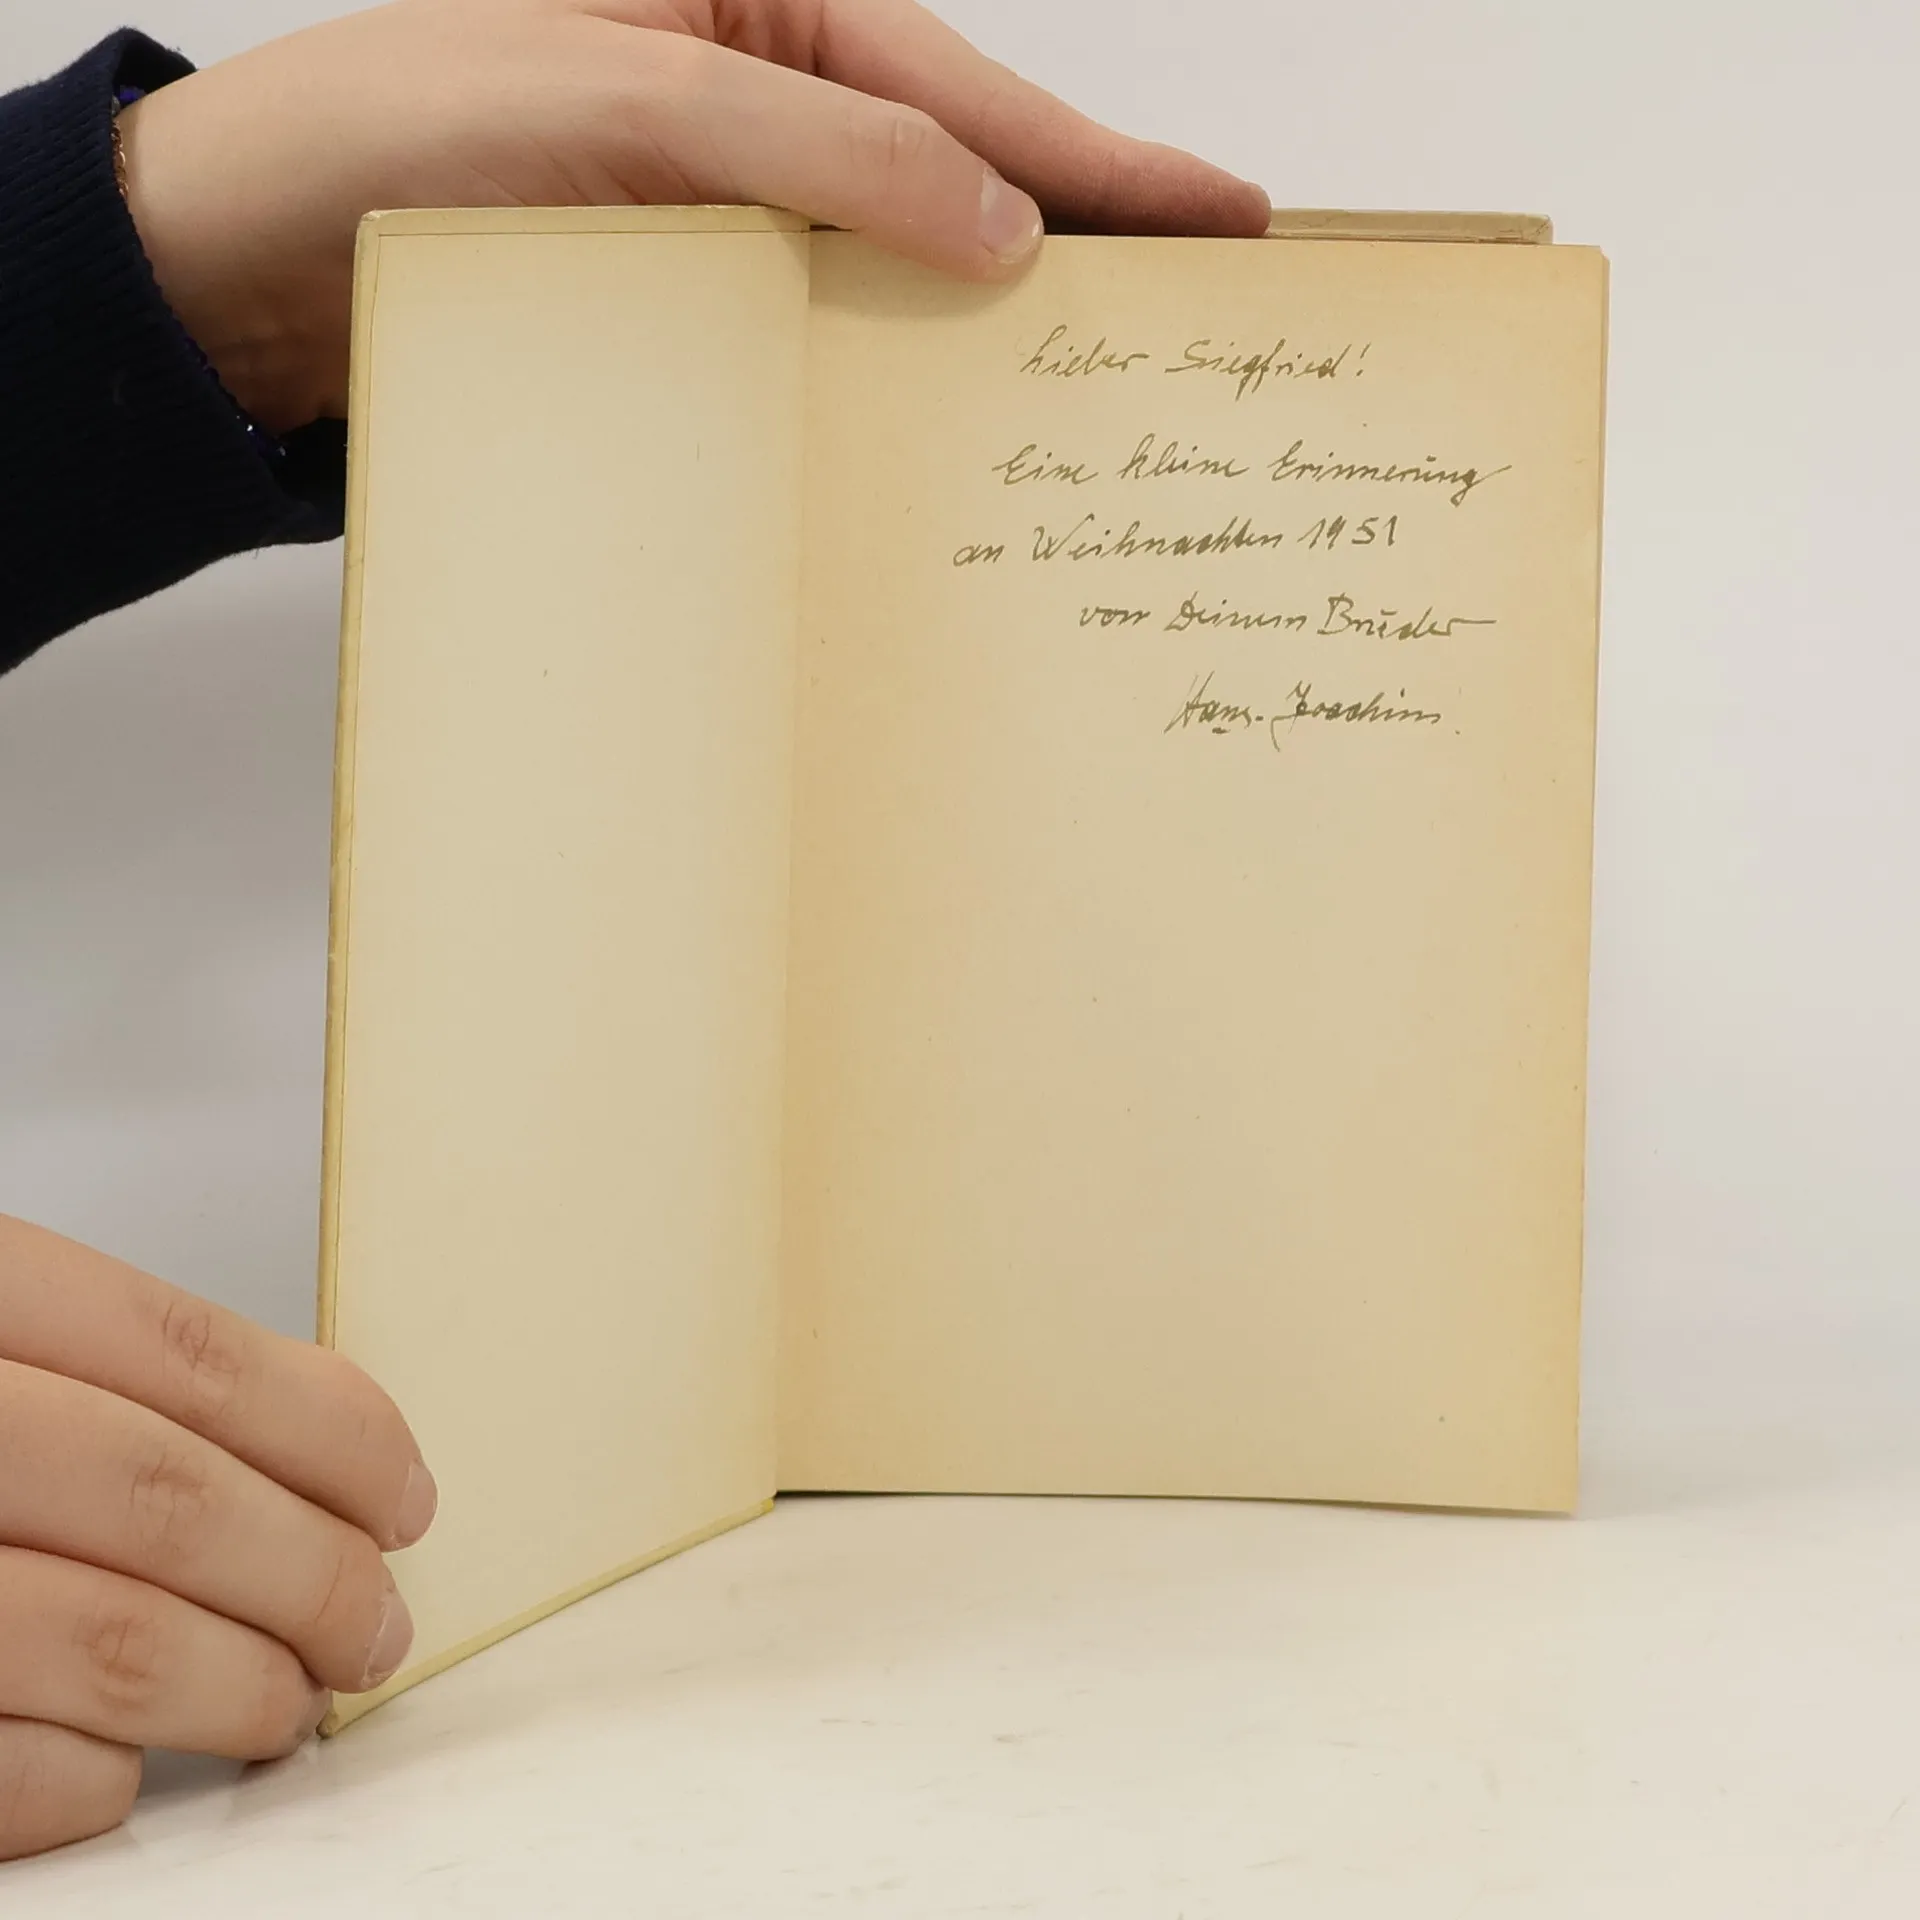 Lieber Siegfried!
Eine kleine Erinnerung
an Weihnachten 1951
von Deinem Bruder
Hans-Joachim.